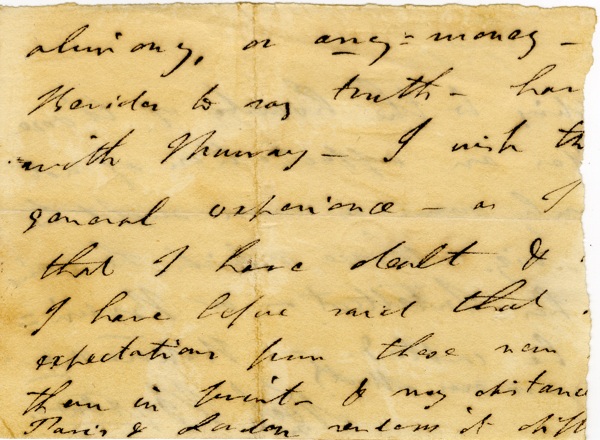 alimony, or any=money –
Besides to say truth – hav
with Murray – I wish th
general experience – as I
that I have dealt &
I have before said that
expectations from these new
them in print – & my distance
Paris & London renders it diff